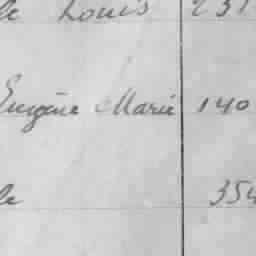 le Louis 231
Eugène Marie 140
le 354